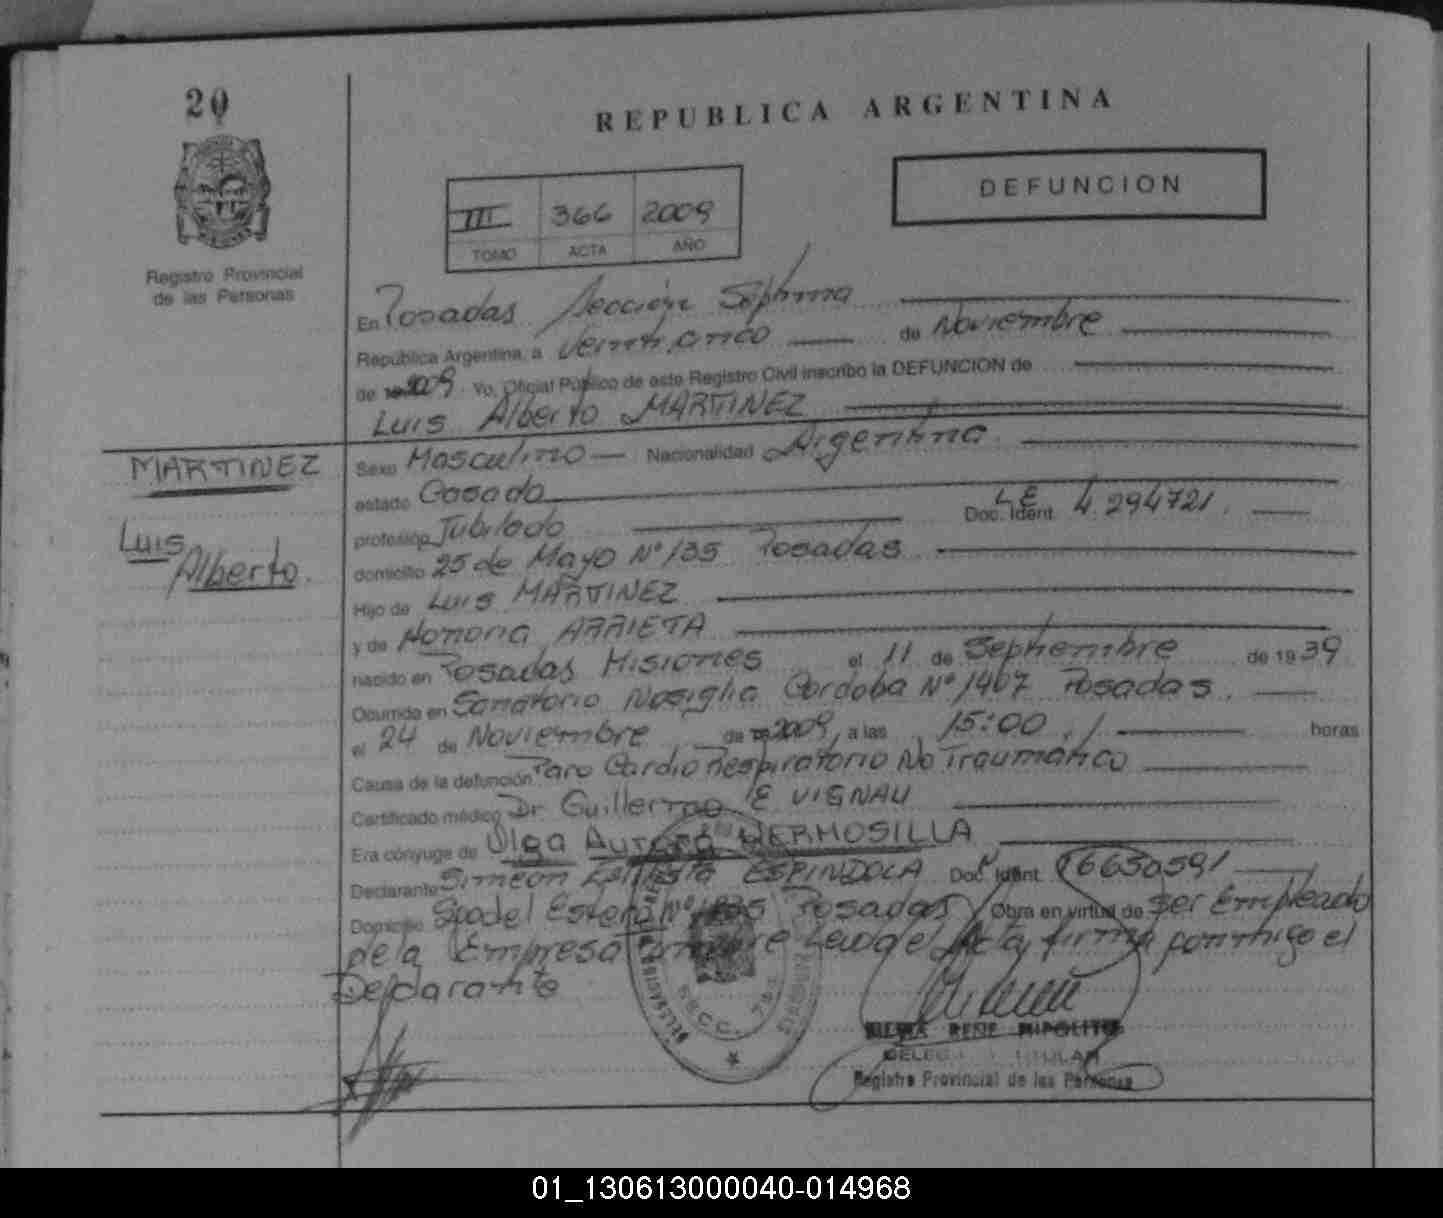 20
REPUBLICA ARGENTINA
DEFUNCION
III 366 2009
TOMO ACTA AÑO
Registro Provincial
de las Personas
En Posadas Sección Séptima
Republica Argentina, a Veinticinco de Noviembre
de 2009 Yo, Oficial Público de este Registro Civil inscribo la DEFUNCION de
Luis Alberto MARTINEZ
MARTINEZ
Luis
Alberto.
Sexo Masculino Nacionalidad Argentina
estado Casado
profesión Jubilado Doc. Ident. L.E 4.294721.
domicilio 25 de Mayo Nº 135 Posadas
Hijo de Luis MARTINEZ
y de Honoria ARRIETA
nacido en Posadas Misiones el 11 de Septiembre de 1939
Ocurrida en Sanatorio Nosiglia Cordoba Nº 1407 Posadas
el 24 de Noviembre de 2009, a las 15:00 horas
Causa de la defunción Paro Cardio Respiratorio No Traumatico
Certificado médico Dr Guillermo E VIGNAU
Era cónyuge de Olga Aurora HERMOSILLA
Declarante Simeon ESPINDOLA Doc. Ident.
Domicilio Sgo del Estero Nº Posadas Obra en virtud de ser Empleado
de la Empresa Leida el Acta firma conmigo el
Declarante
SECC. 7ma
RENE HIPOLITO
DELEGADO TITULAR
Registro Provincial de las Personas
01_130613000040-014968